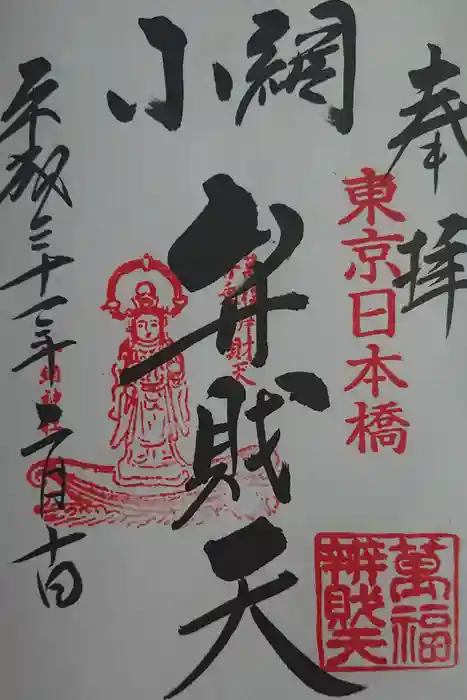 奉拝
東京日本橋
萬福
辨財天
小網
弁財天
平成三十一年二月十日